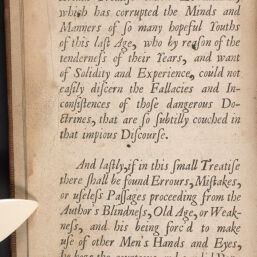 which has corrupted the Minds and
Manners of ſo many hopeful Youths
of this laſt Age, who by reaſon of the
tenderneſs of their Years, and want
of Solidity and Experience, could not
eaſily diſcern the Fallacies and In-
conſiſtences of thoſe dangerous Do-
ctrines, that are ſo ſubtilly couched in
that impious Diſcourſe.
And laſtly, if in this ſmall Treatiſe
there ſhall be found Errours, Miſtakes,
or uſeleſs Paſſages proceeding from the
Author's Blindneſs, Old Age, or Weak-
neſs, and his being forc'd to make
uſe of other Men's Hands and Eyes,
he hopes the